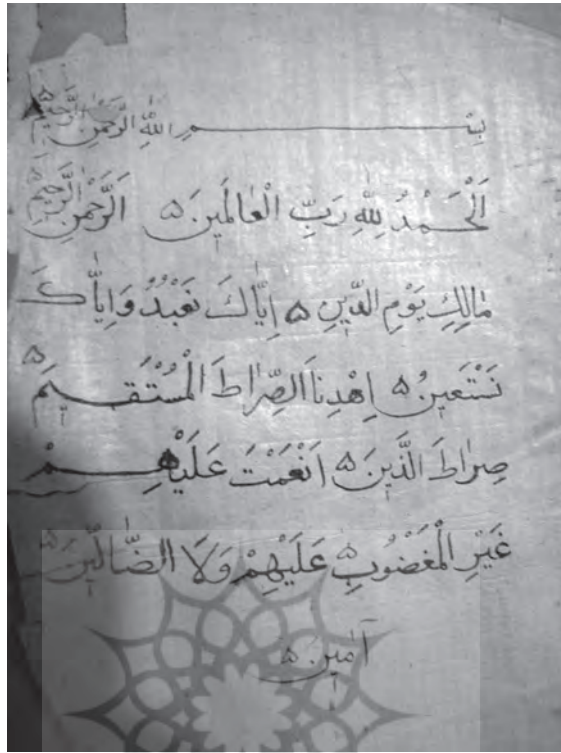 بِسْــــــمِ اللهِ الرَّحْمٰنِ الرَّحِيْمِ ۵
اَلْحَمْدُ لِلّٰهِ رَبِّ الْعٰالَمِينَ ۵ اَلرَّحْمٰنِ الرَّحِيْمِ
مٰالِكِ يَوْمِ الدِّينِ ۵ اِيّٰاكَ نَعْبُدُ وَاِيّٰاكَ
نَسْتَعِينُ ۵ اِهْدِنَا الصِّرٰاطَ الْمُسْتَقِيمَ ۵
صِرٰاطَ الَّذِينَ ۵ اَنْعَمْتَ عَلَيْهِمْ
غَيْرِ الْمَغْضُوبِ ۵ عَلَيْهِمْ وَلَا الضّٰالِّينَ ۵
آمٰين ۵